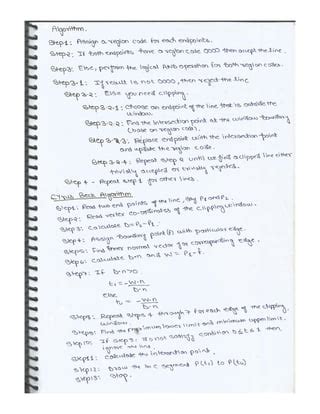 Algorithm.
Step1: Assign a region code for each endpoints.
Step2: If both endpoints have a region code 0000 then accept the line.
Step3: Else, perform the logical AND operation for both region codes.
Step3-1: If result is not 0000, then reject the line
Step3-2: Else you need clipping.
Step3-2-1: Choose an endpoint of the line that is outside the window.
Step3-2-2: Find the intersection point at the window boundary (base on region code).
Step3-2-3: Replace endpoint with the intersection point and update the region code.
Step3-2-4: Repeat step 2 until we find a clipped line either trivially accepted or trivially rejected.
Step 4 - Repeat step 1 for other lines.
Cyrus Beck Algorithm
Step1: Read two end points of the line, say P1 and P2.
Step2: Read vertex co-ordinates of the clipping window.
Step3: Calculate D=P2-P1.
Step4: Assign boundary point (f) with particular edge.
Step5: Find inner normal vector for corresponding edge.
Step6: Calculate D·n and W = P1-f.
Step7: If D·n>0
t1 = -W·n / D·n
else
t2 = -W·n / D·n
Step8: Repeat steps 4 through 7 for each edge of the clipping window.
Step9: Find the maximum lower limit and minimum upper limit.
Step10: If do not satisfy condition 0≤t≤1 then ignore the line.
Step11: Calculate the intersection point.
Step12: Draw the line segment P(tL) to P(tU)
Step13: Stop.